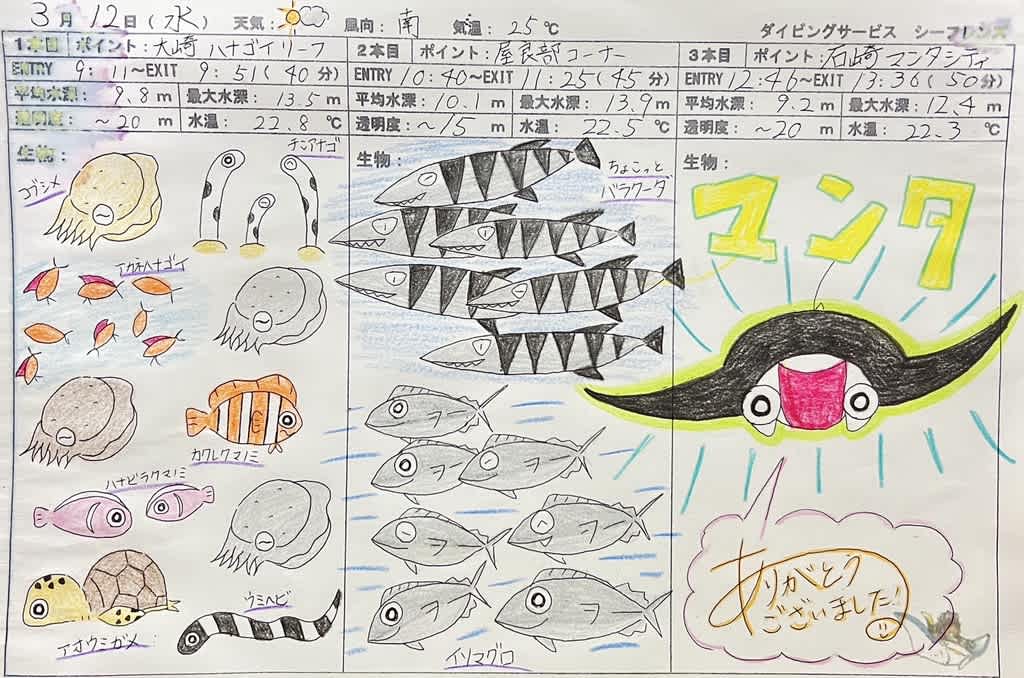 3月12日(水) 天気: 風向: 南 気温: 25℃
ダイビングサービス シーフレンズ
1本目 ポイント: 大崎 ハナゴイリーフ
ENTRY 9:11~EXIT 9:51(40分)
平均水深: 9.8m 最大水深: 13.5m
透明度: ~20m 水温: 22.8℃
生物:
コブシメ
チンアナゴ
アカネハナゴイ
カクレクマノミ
ハナビラクマノミ
アオウミガメ
ウミヘビ
2本目 ポイント: 屋良部コーナー
ENTRY 10:40~EXIT 11:25(45分)
平均水深: 10.1m 最大水深: 13.9m
透明度: ~15m 水温: 22.5℃
生物:
ちょこっと
バラクーダ
ヲー
ヲー
ヲー
ヲー
ヲー
ヲー
ヲー
イソマグロ
3本目 ポイント: 石崎 マンタシティ
ENTRY 12:46~EXIT 13:36(50分)
平均水深: 9.2m 最大水深: 12.4m
透明度: ~20m 水温: 22.3℃
生物:
マンタ
ありがとう
ございました!